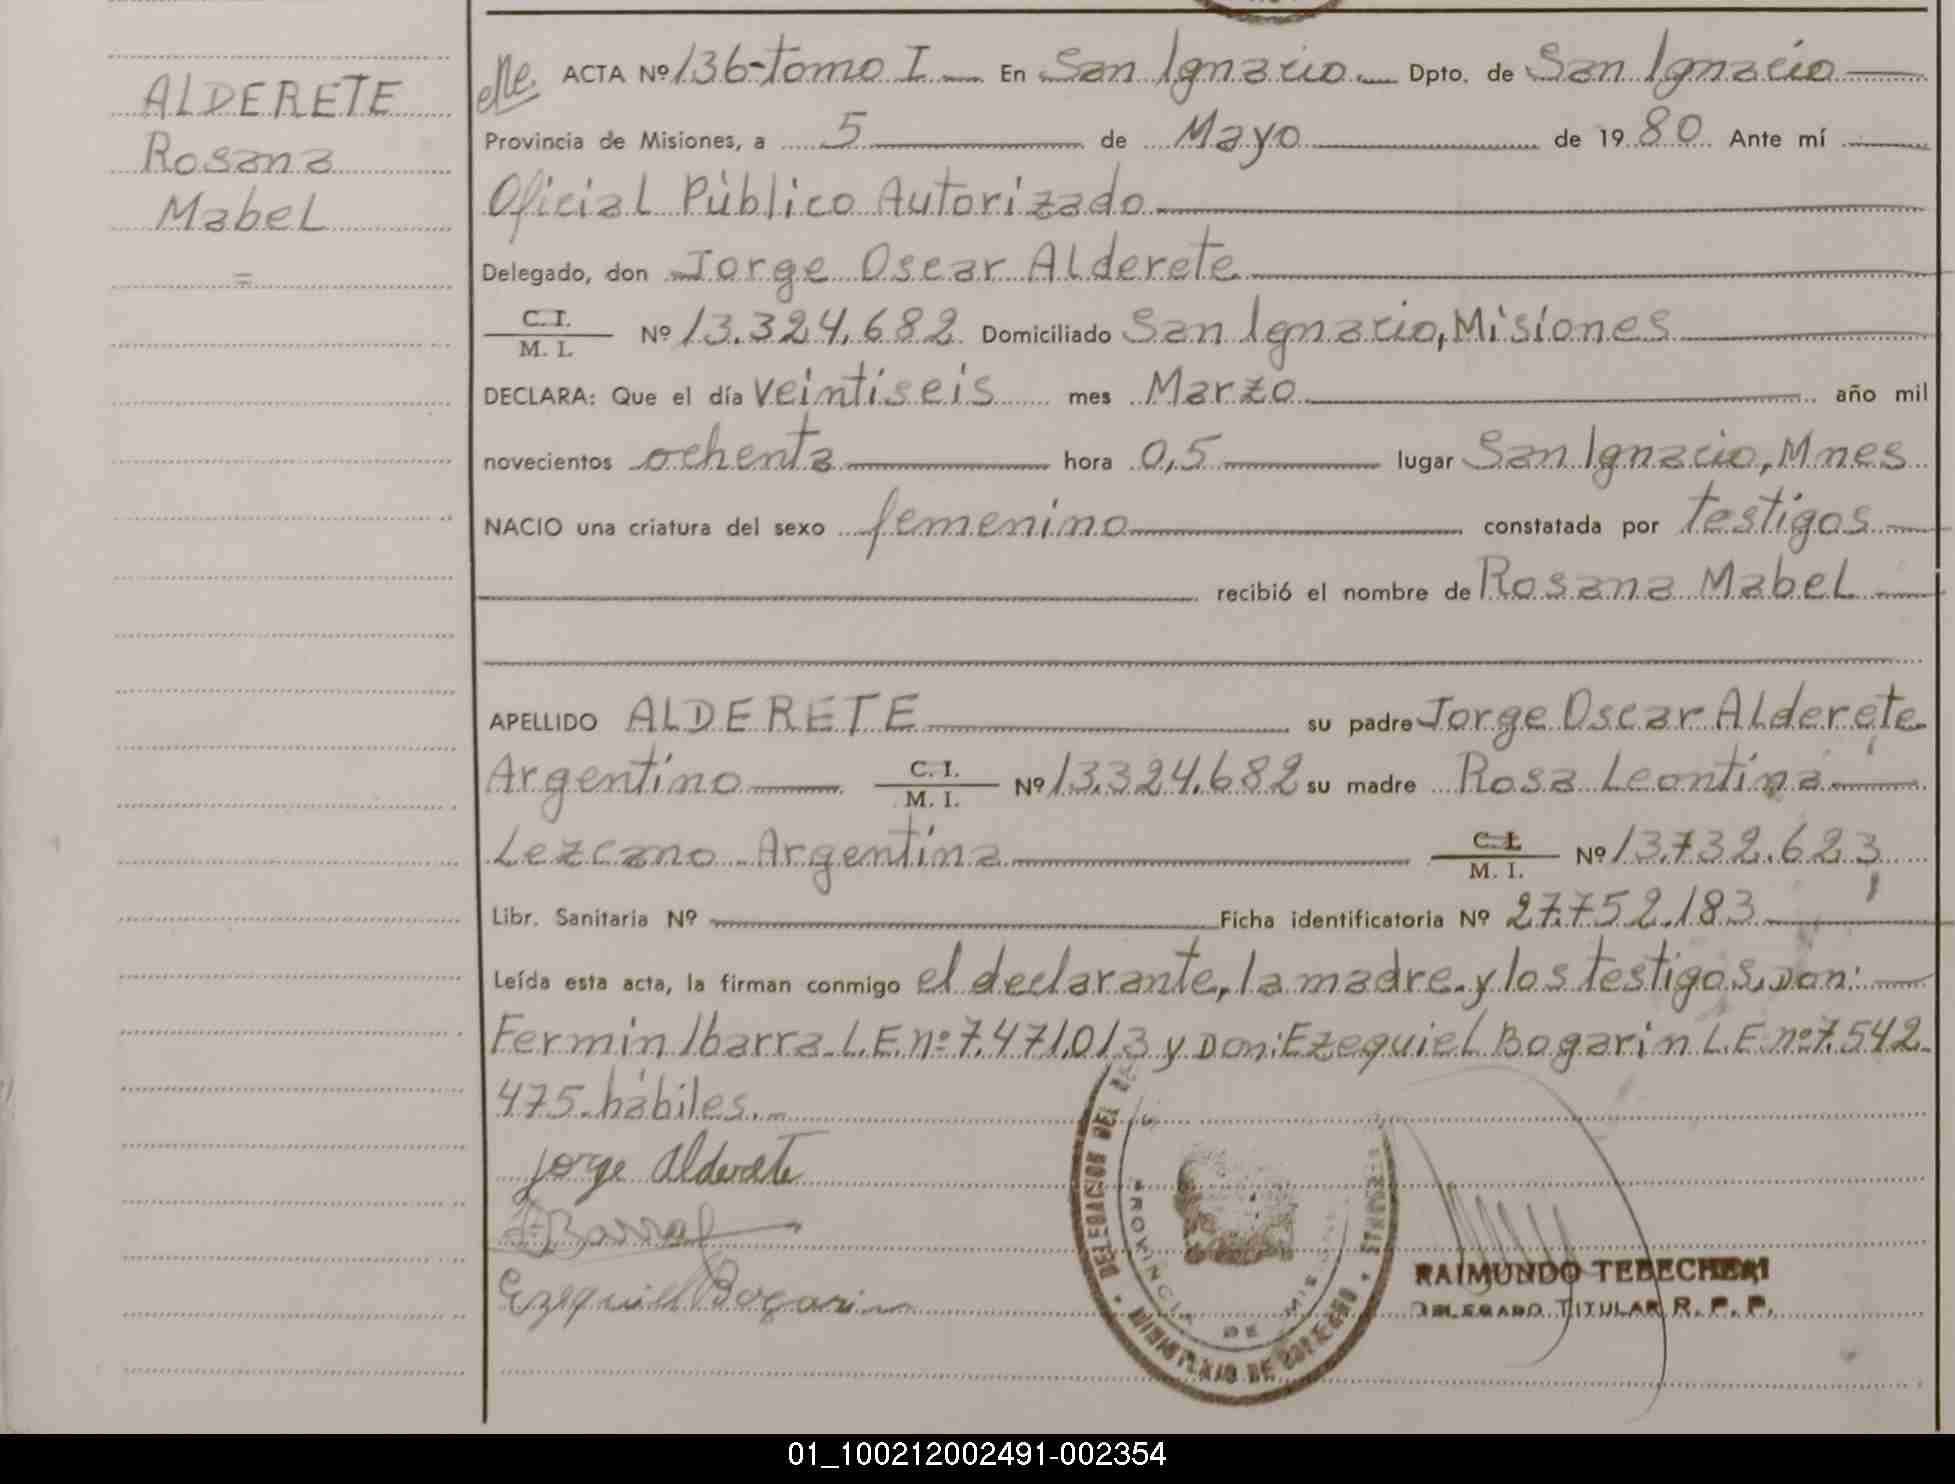 ALDERETE
Rosana
Mabel
=
ACTA Nº 136-tomo I En San Ignacio Dpto. de San Ignacio
Provincia de Misiones, a 5 de Mayo de 1980 Ante mí
Oficial Público Autorizado
Delegado, don Jorge Oscar Alderete
C. I.
M. I. Nº 13.324.682 Domiciliado San Ignacio, Misiones
DECLARA: Que el día veintiseis mes Marzo año mil
novecientos ochenta hora 0,5 lugar San Ignacio, Mnes
NACIO una criatura del sexo femenino constatada por testigos
recibió el nombre de Rosana Mabel
APELLIDO ALDERETE su padre Jorge Oscar Alderete
Argentino C. I. M. I. Nº 13.324.682 su madre Rosa Leontina
Lezcano Argentina C. I. M. I. Nº 13.732.623
Libr. Sanitaria Nº Ficha identificatoria Nº 27.752.183
Leída esta acta, la firman conmigo el declarante, la madre y los testigos, Don:
Fermin Ibarra L.E. nº 7.471.013 y Don: Ezequiel Bogarin L.E. nº 7.542
475. hábiles.
Jorge Alderete
Ezequiel Bogarin
DELEGACION DEL
PROVINCIA DE MIS
MINISTERIO DE GOBIERNO
RAIMUNDO TEBECHERI
DELEGADO TITULAR R. P. P.
01_100212002491-002354